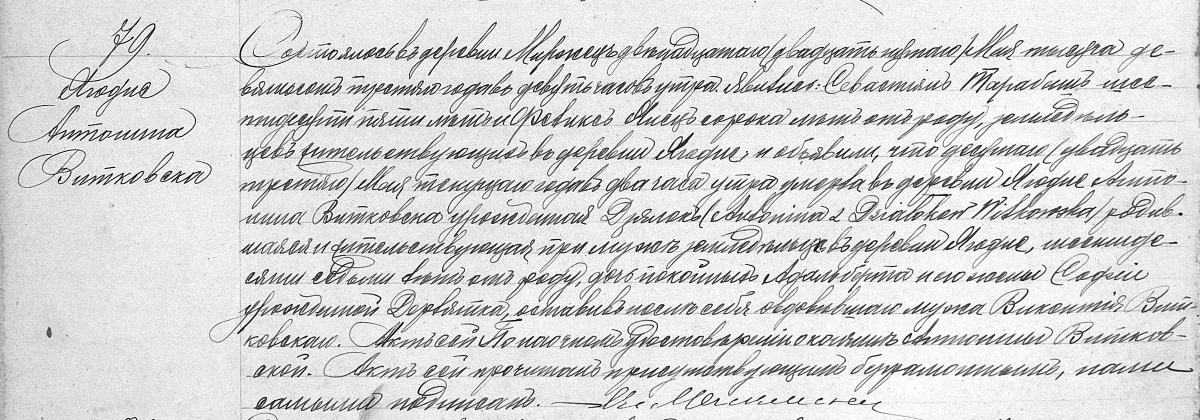 79.
Ягодне
Антонина
Витковска
Состоялось въ деревни двенадцатаго /двадцать пятаго/ Мая тысяча де-
вятьсотъ третяго года въ девять часовъ утра. Явились: Севастіянъ Тарабишъ шес-
тидесяти пяти лѣтъ и Феликсъ сорока лѣтъ отъ роду, земледель-
цевъ жительствующихъ въ деревни Ягодне, и объявили, что десятаго /двадцать
третяго/ Мая текущаго года въ два часа утра умерла въ деревни Ягодне Анто-
нина Витковска урожденная /Antonina z Witkowska/ родив-
шаяся и жительствующая при мужѣ земледѣльцѣ въ деревни Ягодне, шестиде-
сяти седьми лѣтъ отъ роду, дочь покойныхъ Адальберта и его жены Софіи
урожденной оставивъ послѣ себя овдовѣвшаго мужа Викентія Вит-
ковскаго. Актъ сей По наочномъ удостовѣреніи о кончинѣ Антонины Витков-
ской. Актъ сей прочитанъ присутствующимъ безграмотнымъ, нами
самыми подписанъ. —